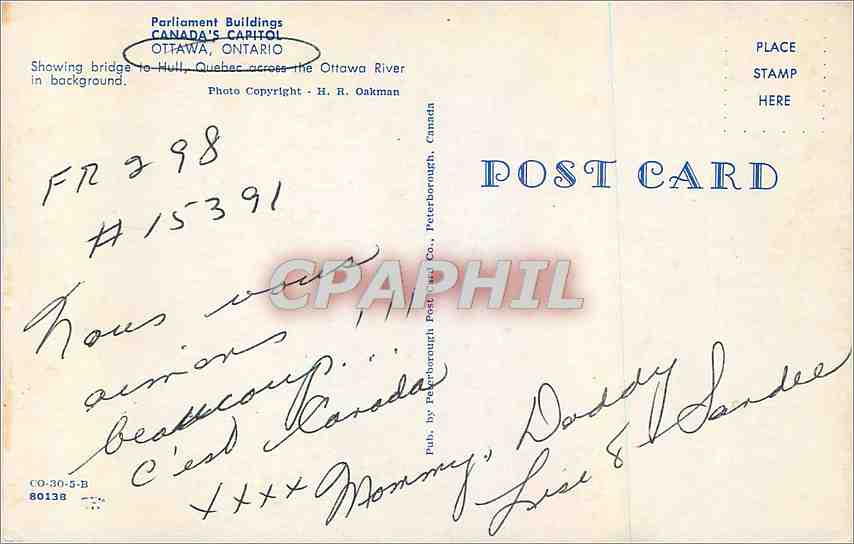 Parliament Buildings
CANADA'S CAPITOL
OTTAWA, ONTARIO
Showing bridge to Hull, Quebec across the Ottawa River
in background.
Photo Copyright - H. R. Oakman
PLACE
STAMP
HERE
POST CARD
FR 298
# 15391
Nous vous
aimons !!!
beaucoup...
C'est Canada
xxxx Mommy, Daddy
Lise & Sandee
Pub. by Peterborough Post Card Co., Peterborough, Canada
CPAPHIL
CO-30-5-B
80138